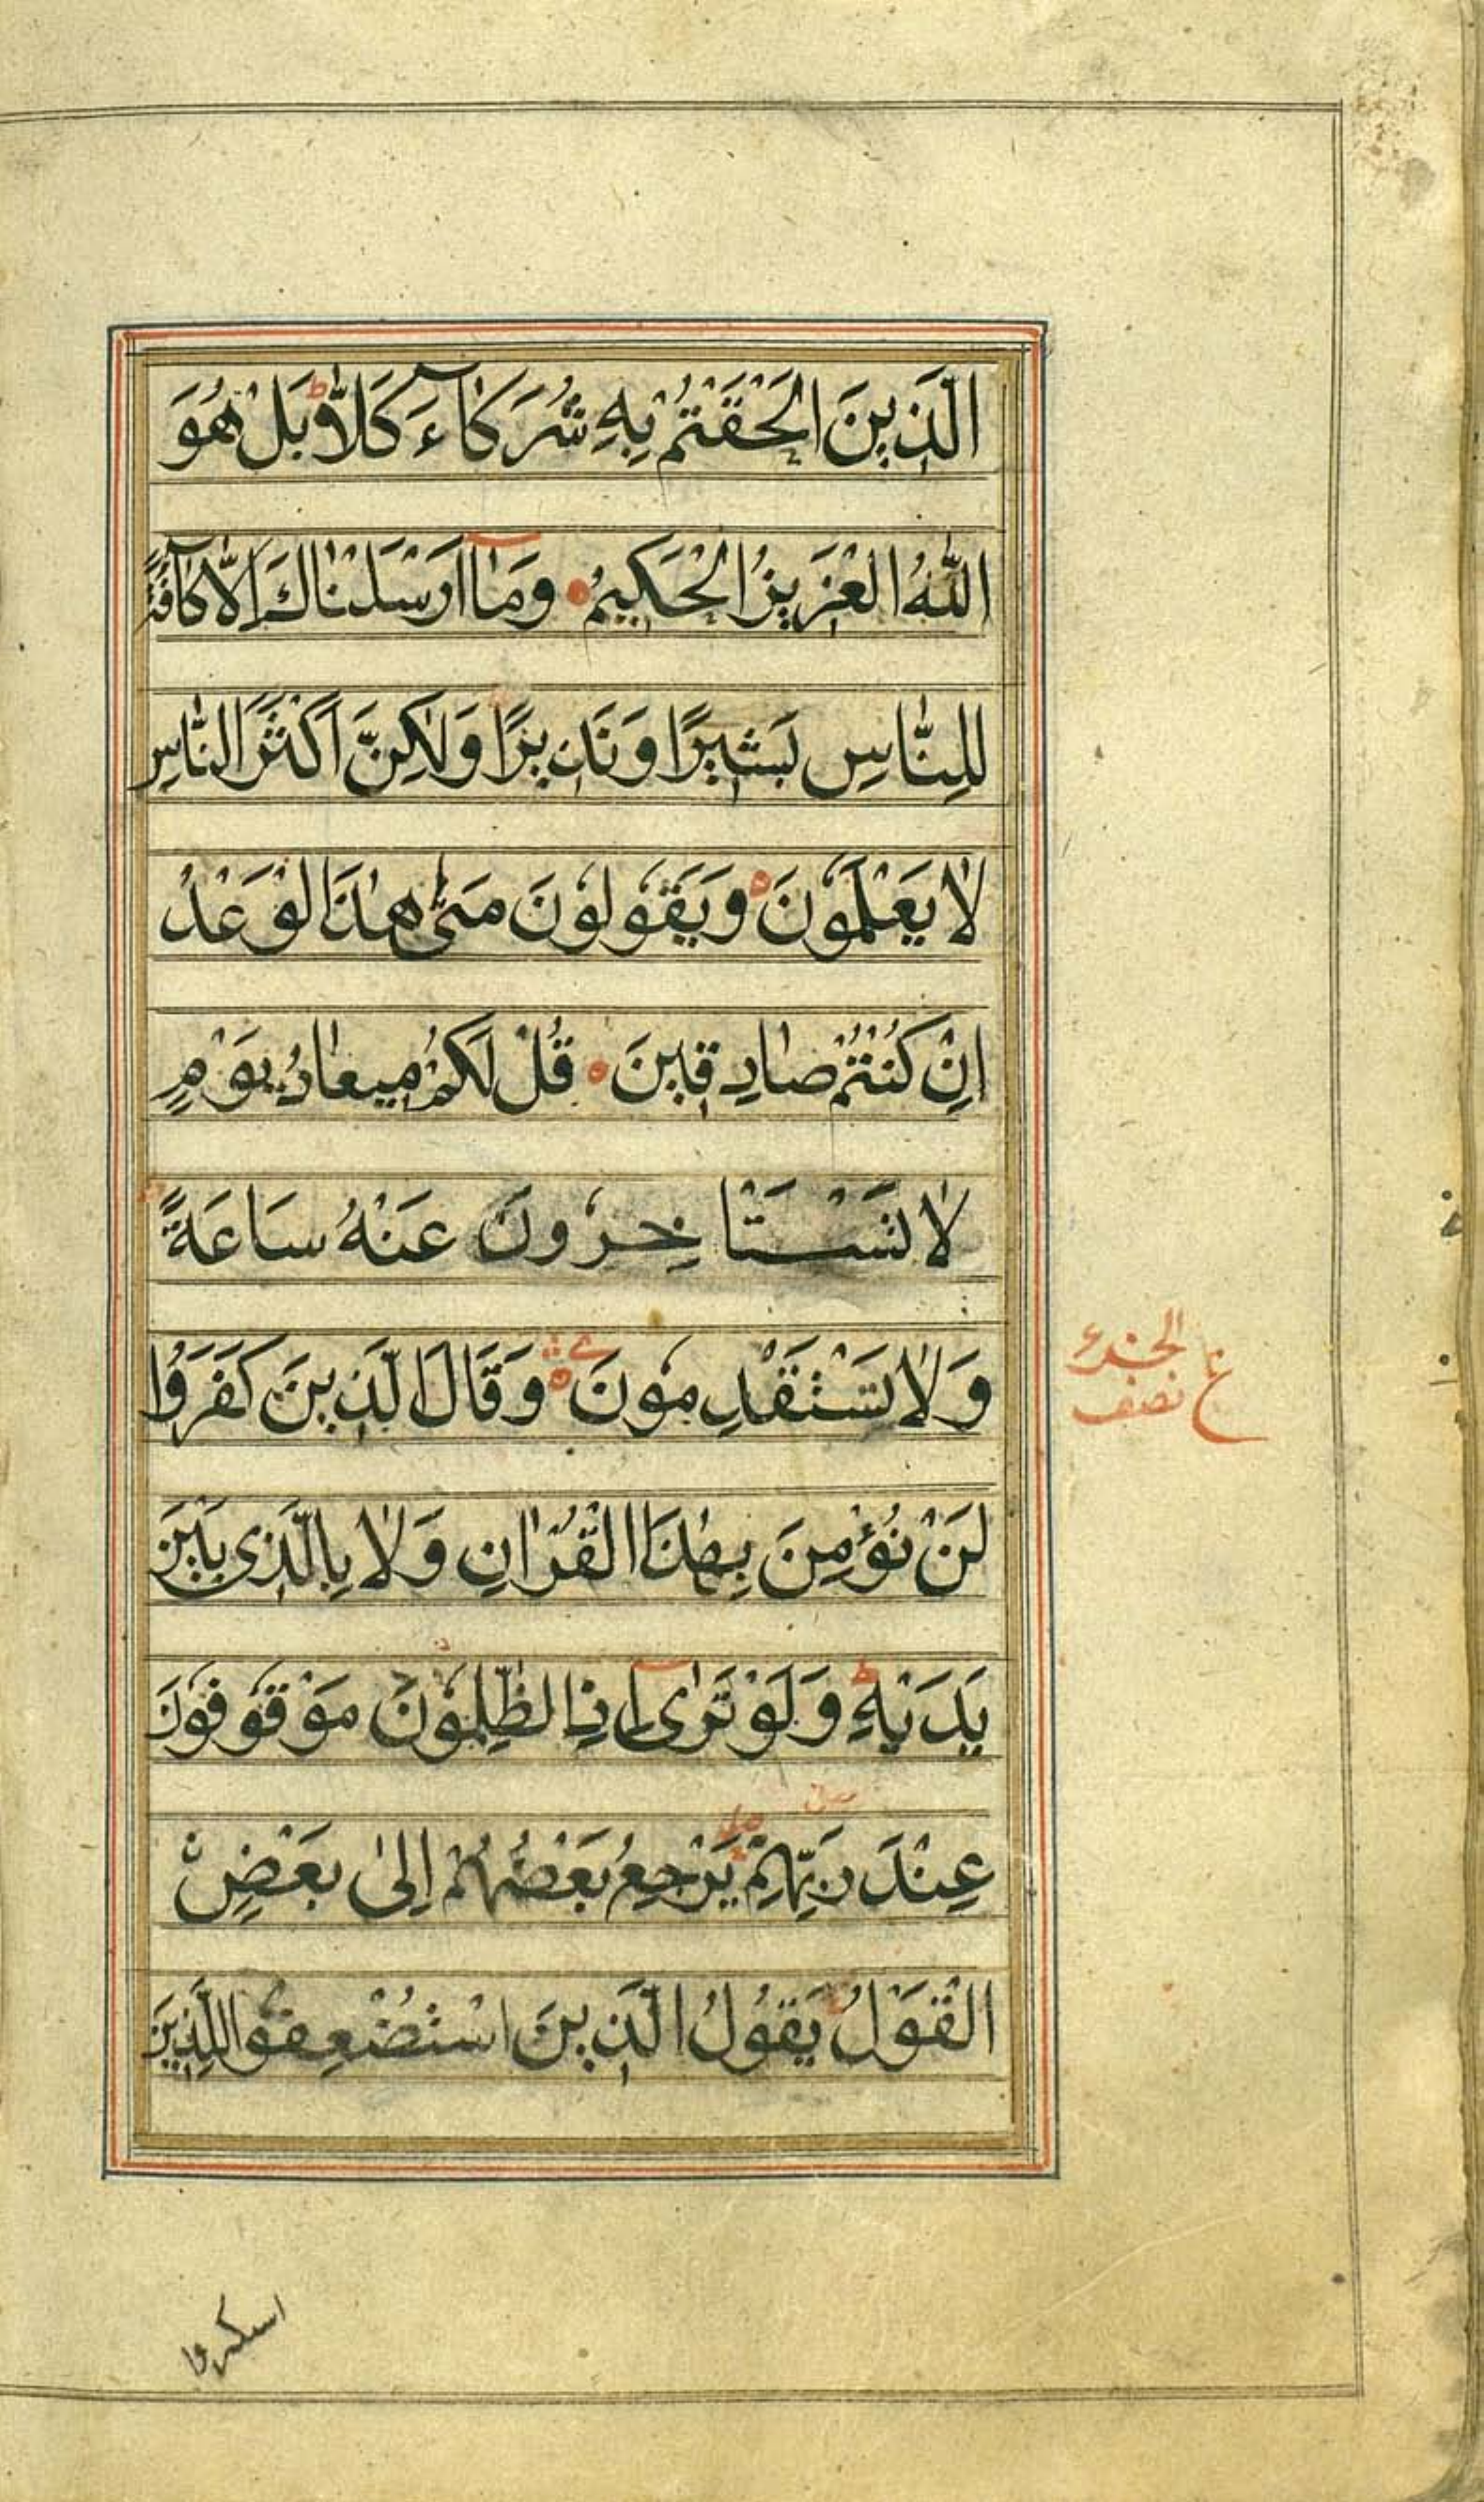 الَّذِينَ اَلْحَقْتُمْ بِهِ شُرَكَآءَ كَلَّا ط بَلْ هُوَ
اللّٰهُ الْعَزِيزُ الْحَكِيمُ وَمَآ اَرْسَلْنَاكَ اِلَّا كَآفَّةً
لِلنَّاسِ بَشِيرًا وَنَذِيرًا وَلٰكِنَّ اَكْثَرَ النَّاسِ
لَا يَعْلَمُونَ وَيَقُولُونَ مَتٰى هٰذَا الْوَعْدُ
اِنْ كُنْتُمْ صَادِقِينَ قُلْ لَكُمْ مِيعَادُ يَوْمٍ
لَا تَسْتَاخِرُونَ عَنْهُ سَاعَةً
وَلَا تَسْتَقْدِمُونَ وَقَالَ الَّذِينَ كَفَرُوا
الجزء
نصف
ع
لَنْ نُؤْمِنَ بِهٰذَا الْقُرْاٰنِ وَلَا بِالَّذِى بَيْنَ
يَدَيْهِ ط وَلَوْ تَرٰىٓ اِذِ الظّٰلِمُونَ مَوْقُوفُونَ
عِنْدَ رَبِّهِمْ يَرْجِعُ بَعْضُهُمْ اِلٰى بَعْضٍ
الْقَوْلَ يَقُولُ الَّذِينَ اسْتُضْعِفُوا لِلَّذِينَ